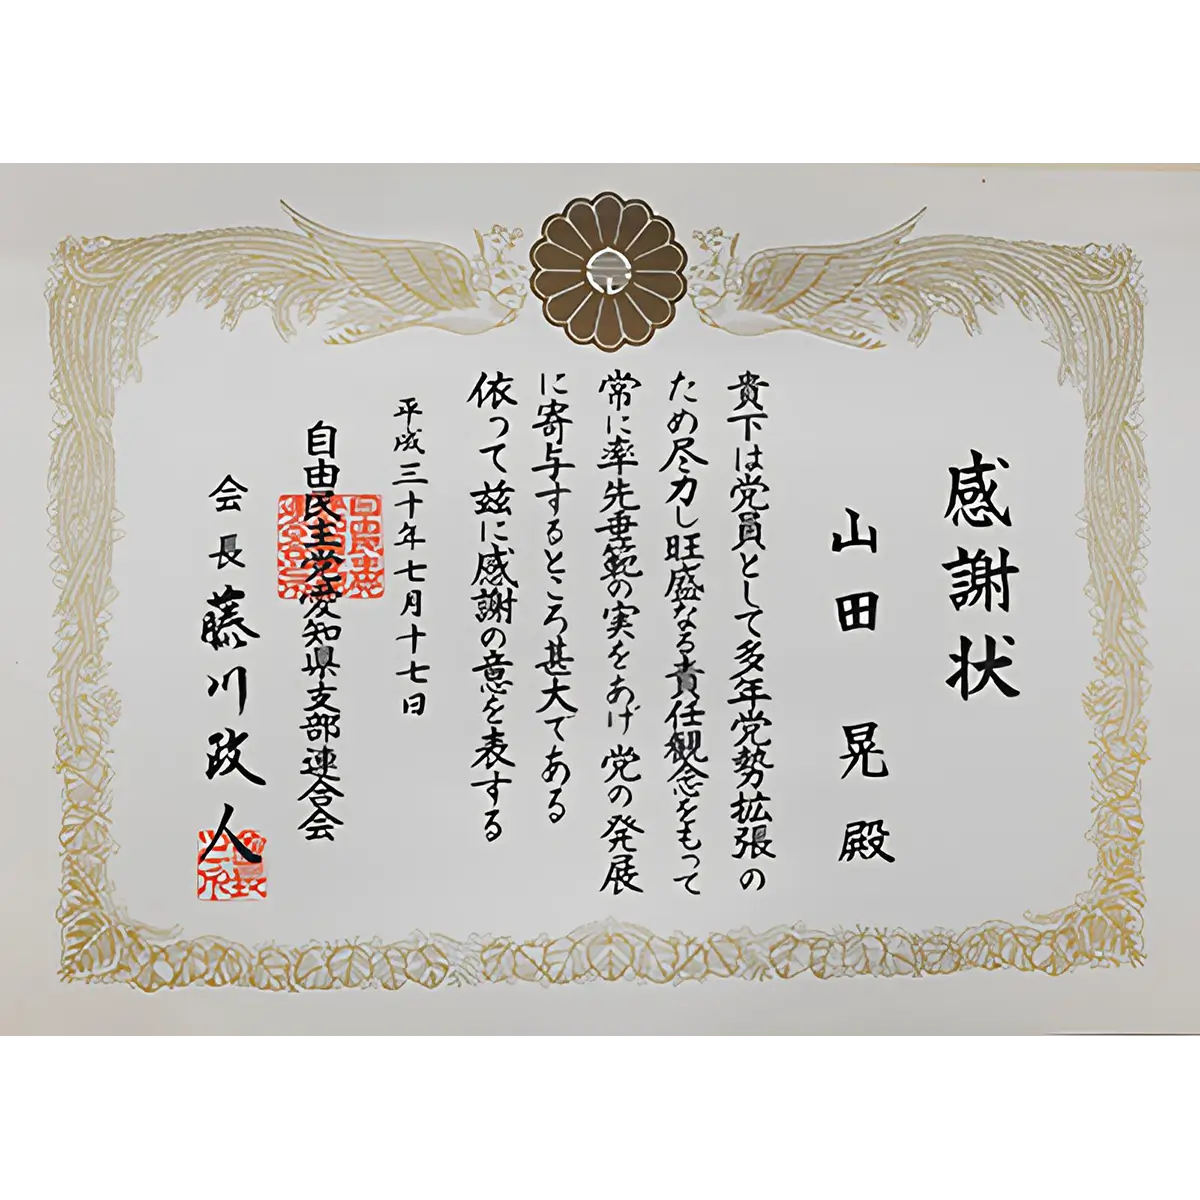 感謝状
山田晃殿
貴下は党員として多年党勢拡張の
ため尽力し旺盛なる責任観念をもって
常に率先垂範の実をあげ党の発展
に寄与するところ甚大である
依って茲に感謝の意を表する
平成三十年七月十七日
自由民主党愛知県支部連合会
会長藤川政人